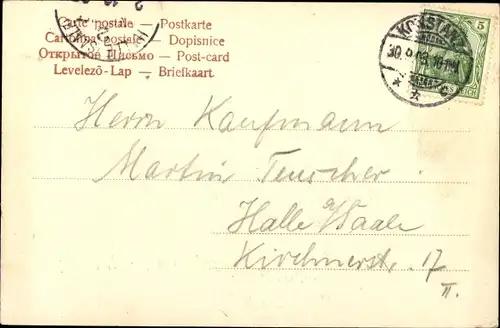 Carte postale — Postkarte
Cartolina postale — Dopisnice
Открытое Письмо — Post-card
Levelező-Lap — Briefkaart.
KONSTANZ
30.9.03.
5
Herrn Kaufmann
Martin Teuscher
Halle a/Saale
Kirchnerstr. 17
II.